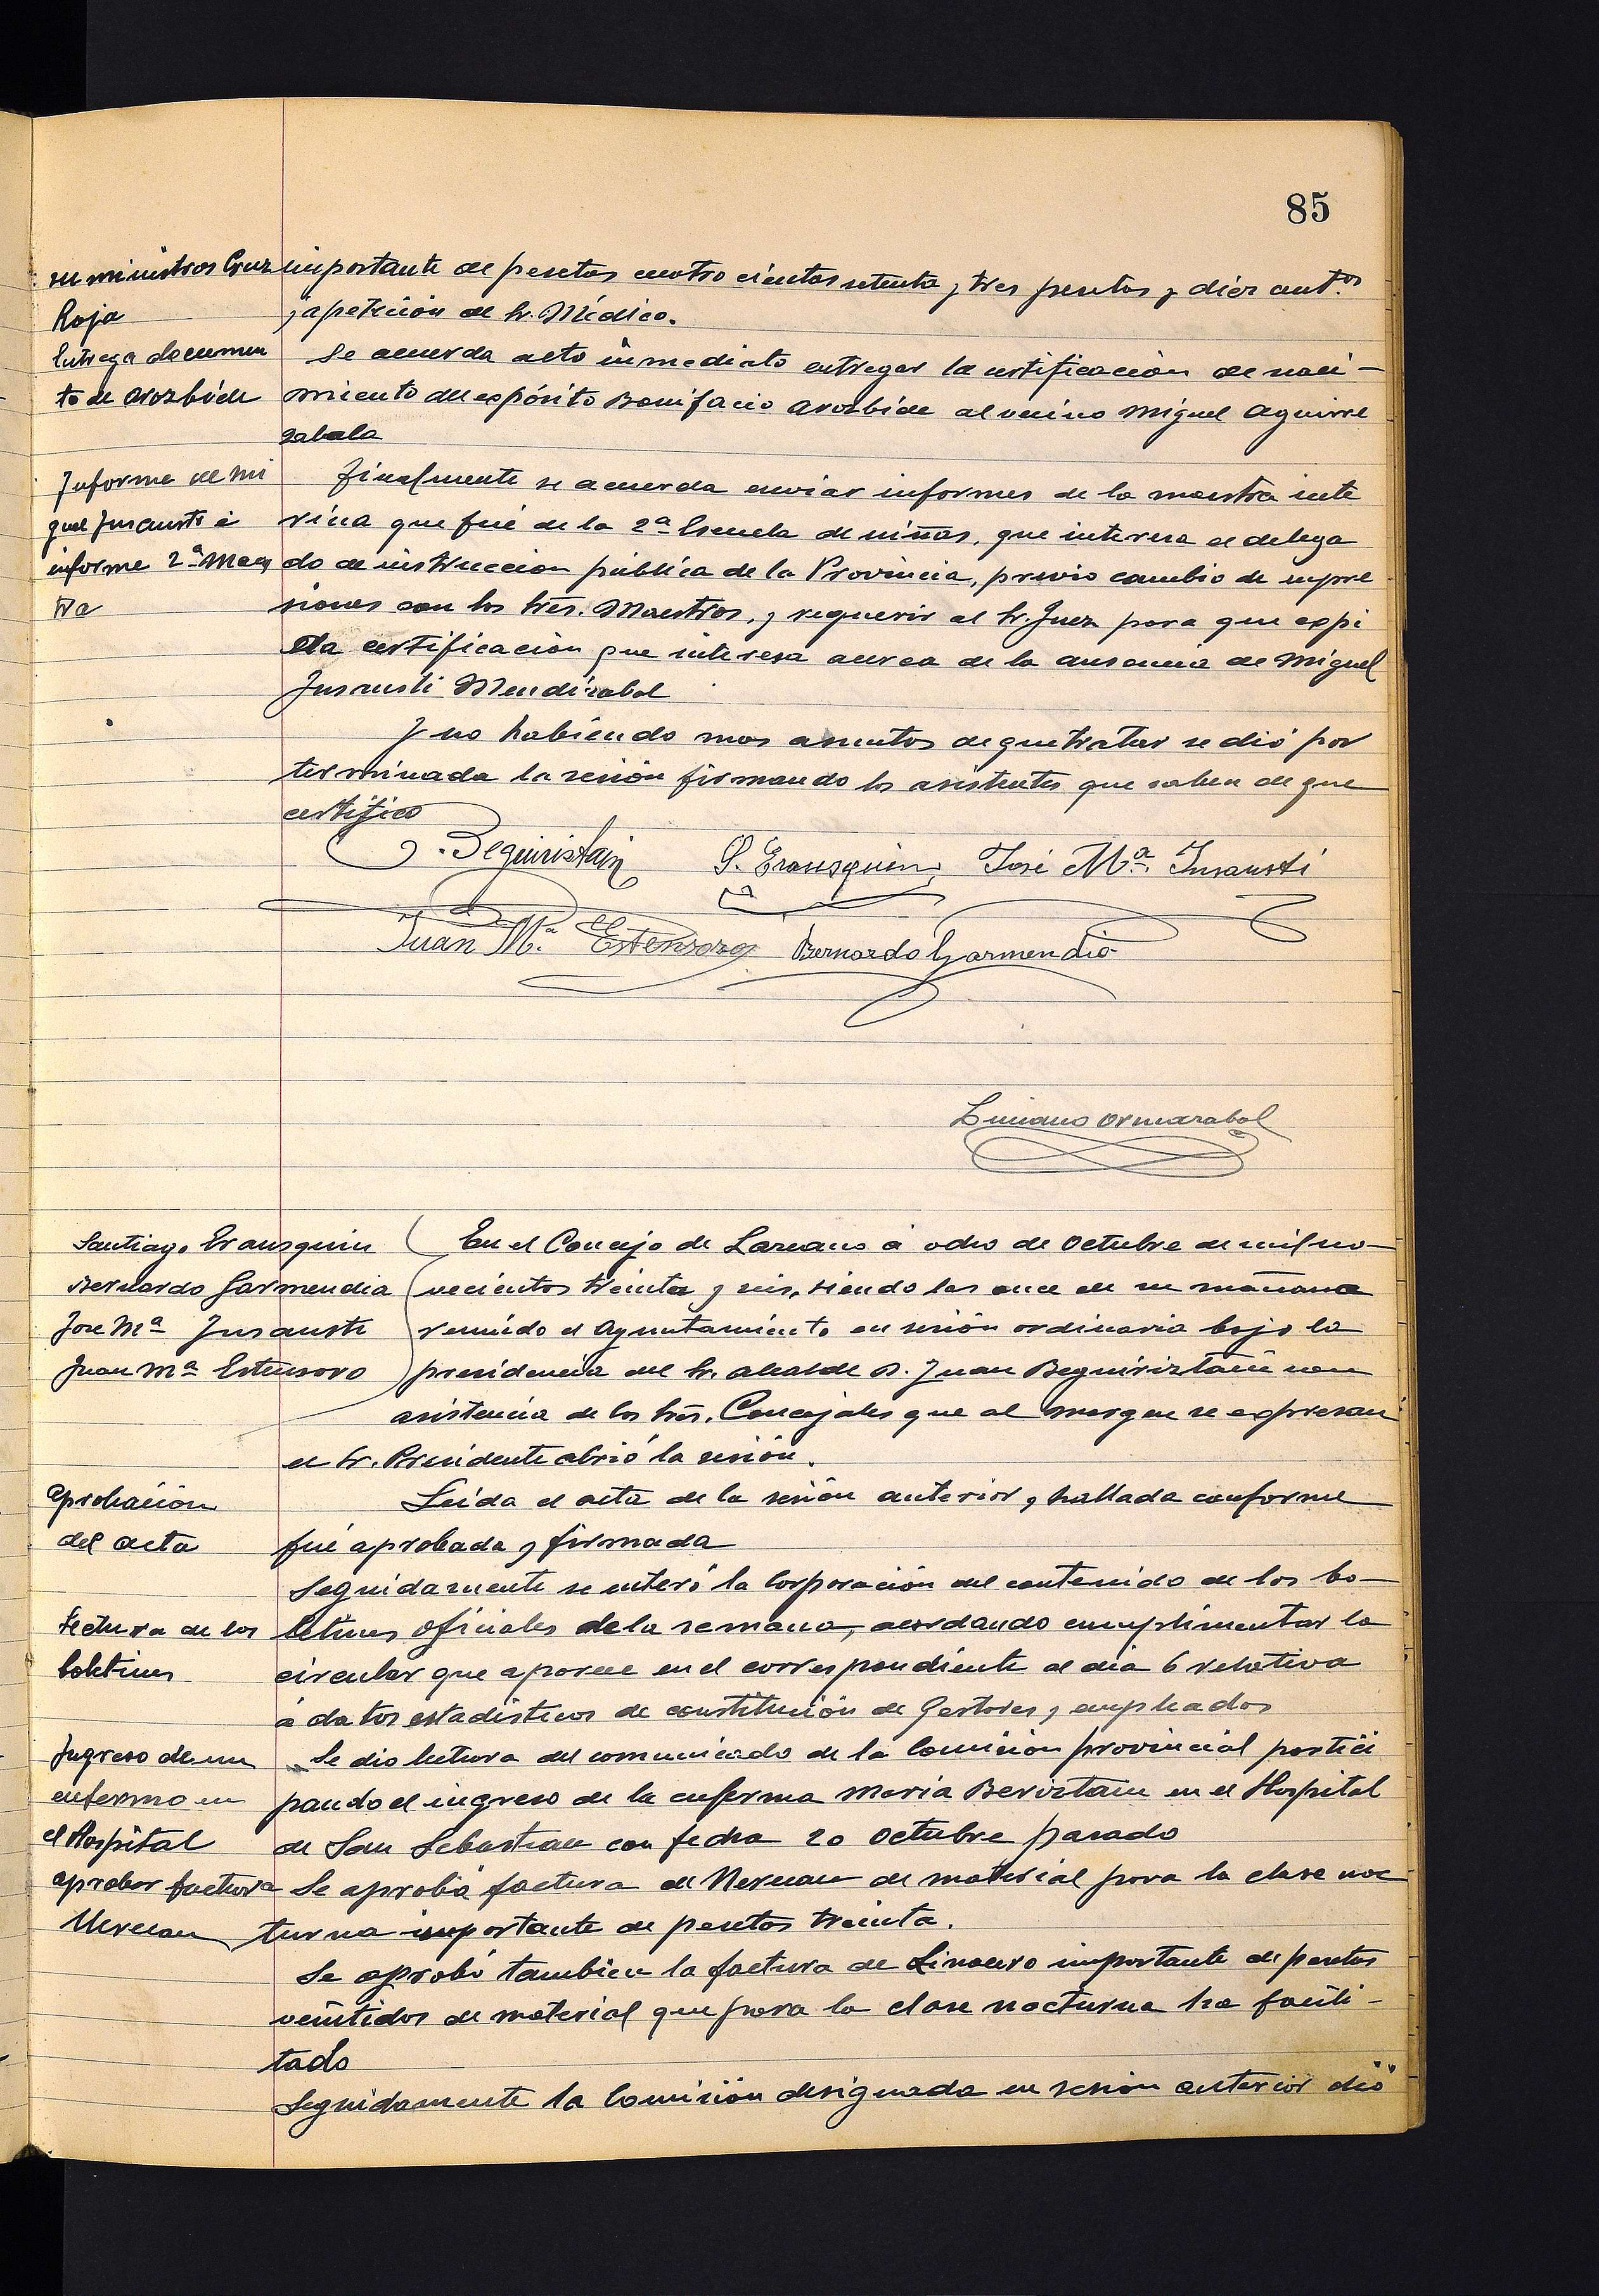 85
suministros Cruz
Roja
importante de pesetas cuatro cientas setenta y tres pesetas y diez cent.os
y a petición de Sr. Médico.
Entrega documen
to de Arozbide
Se acuerda acto inmediato entregar la certificación de naci-
miento del expósito Bonifacio Arozbide al vecino Miguel Aguirre
zabala
Informe de Mi
guel Insausti é
informe 2ª Maes
tra
Finalmente se acuerda enviar informes de la maestra inte
rina que fué de la 2ª Escuela de niñas, que interesa el delega
do de instrucción pública de la Provincia, previo cambio de impre
siones con los Srs. Maestros, y requerir al Sr. Juez para que expi
da certificación que interesa acerca de la ausencia de Miguel
Insausti Mendizabal
Y no habiendo mas asuntos de que tratar se dió por
terminada la sesión firmando los asistentes que saben de que
certifico
J. Beguiristain S. Erausquin José Mª. Insausti
Juan Mª Estensoro Bernardo Garmendia
Luciano Ormazabal
Santiago Erausquin
Bernardo Garmendia
Jose Mª Insausti
Juan Mª Estensoro
En el Concejo de Lazcano á ocho de Octubre de mil no-
vecientos treinta y seis, siendo las once de su mañana
reunido el Ayuntamiento en sesión ordinaria bajo la
presidencia del Sr. alcalde D. Juan Beguiristain con
asistencia de los Srs. Concejales que al margen se expresan
el Sr. Presidente abrió la sesión.
Aprobación
del acta
Leida el acta de la sesión anterior y hallada conforme
fué aprobada y firmada
Lectura de los
boletines
Seguidamente se enteró la Corporación del contenido de los bo-
letines oficiales de la semana, acordando cumplimentar la
circular que aparece en el correspondiente al dia 6 relativa
á datos estadísticos de constitución de Gestores y empleados
Ingreso de un
enfermo en
el Hospital
Se dio lectura del comunicado de la Comisión provincial partici
pando el ingreso de la enferma Maria Beroiztain en el Hospital
de San Sebastian con fecha 20 Octubre pasado
aprobar factura
Nerecan
Se aprobó factura de Nerecan de material para la clase noc
turna importante de pesetas treinta.
Se aprobó tambien la factura de Linacero importante de pesetas
veintidos de material que para la clase nocturna ha facili-
tado
Seguidamente la Comisión designada en sesión anterior dió